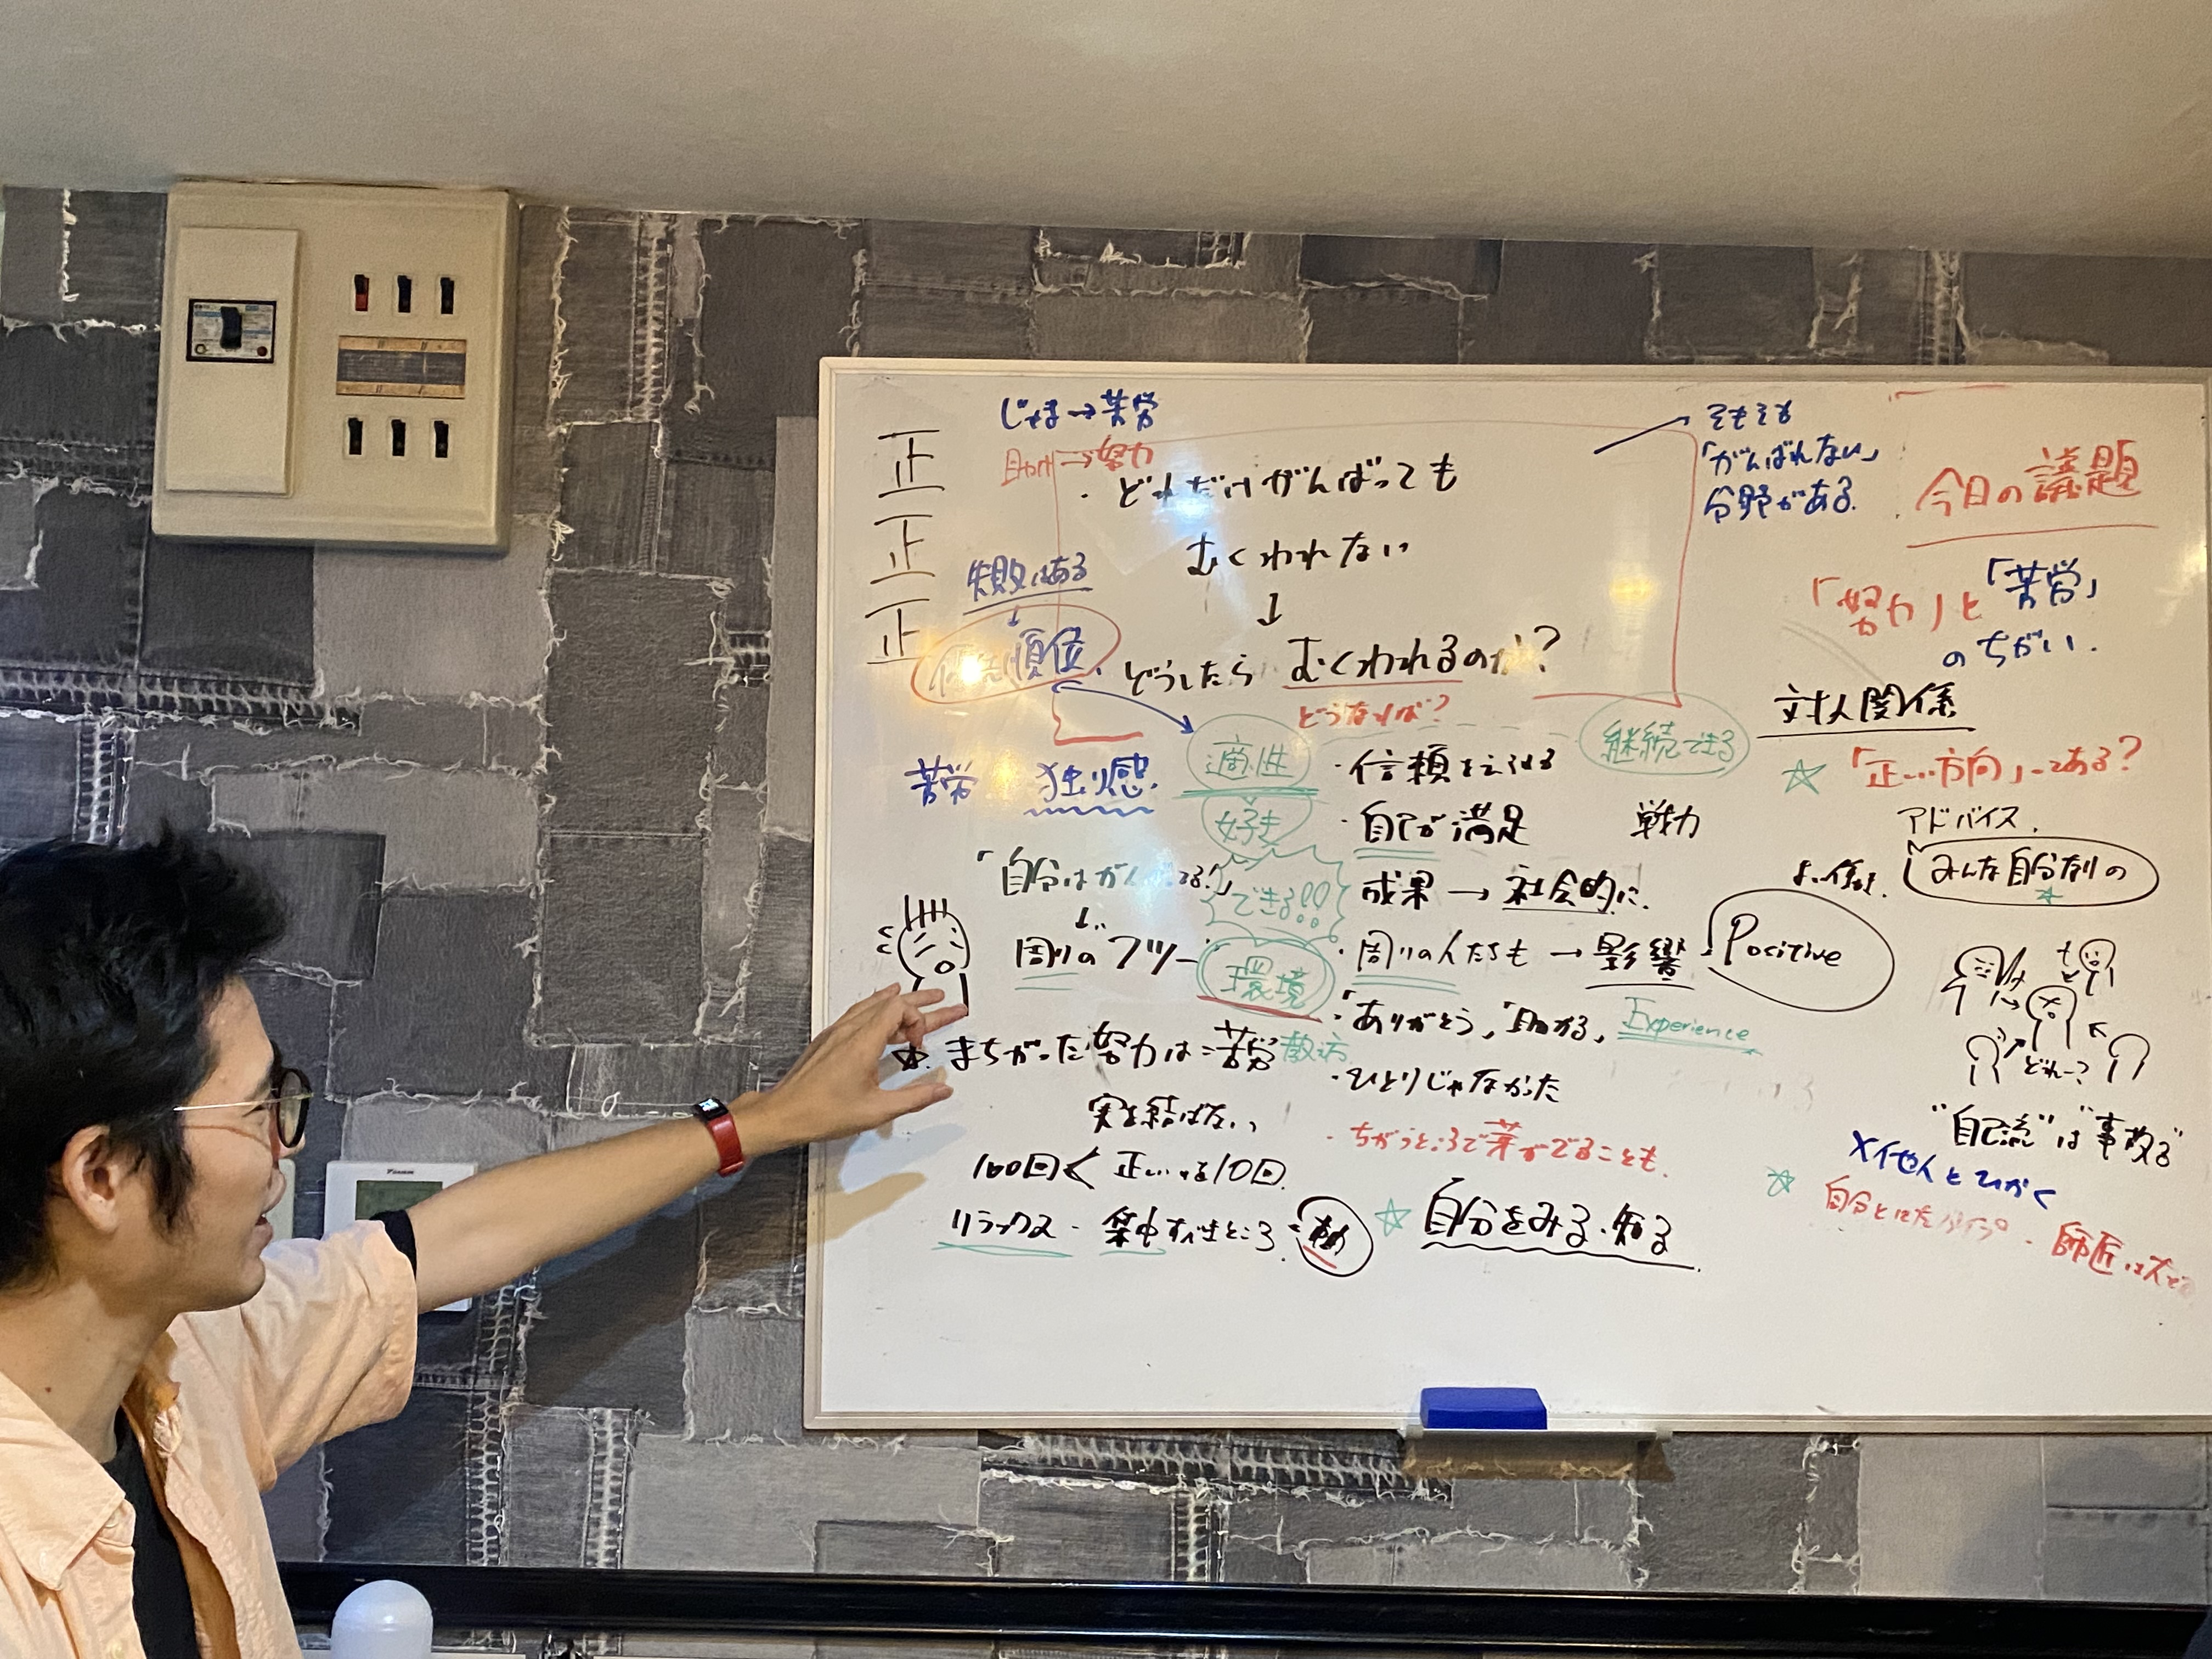 じゃま→苦労
助け→努力
正
正
正
・どれだけがんばっても
むくわれない
↓
どうしたら むくわれるのか?
どうなれば?
そもそも
「がんばれない」
分野がある.
今日の議題
「努力」と「苦労」
のちがい.
失敗はある
↓
優先順位.
苦労 独り感.
適性
好き
できる!!
環境
継続できる
「自分はがんばってる!」
↓
周りのフツー
☆. まちがった努力は=苦労
実を結ばない、
100回< 正しいやる10回.
リラックス - 集中すべきところ.
・信頼
・自己が満足
戦力
成果→社会的に.
・周りの人たちも→影響
Positive
・「ありがとう」「助かる」
Experience
・ひとりじゃなかった
・ちがうところで芽がでることも.
☆ 自分をみる・知る
対人関係
☆ 「正しい方向」ってある?
アドバイス.
みんな自分なりの
どれー?
"自己流"は"事故る"
×他人とひかく
☆ 自分と
・師匠は